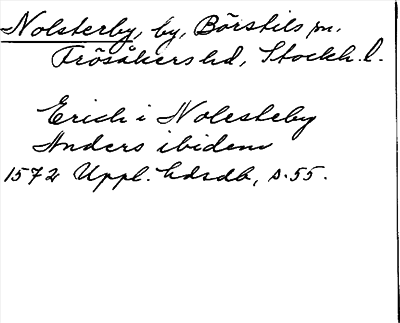 Nolsterby, by, Börstils sn.
Frösåkers hd, Stockh. l.
Erich i Nolesteby
Anders ibidem
1572 Uppl. hdrdb, s. 55.